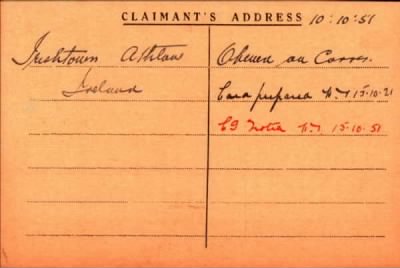 CLAIMANT'S ADDRESS 10.10.51
Irishtown Athlone
Ireland
Opened on Corres.
Card prepared 15.10.51
C9 Notice 15.10.51